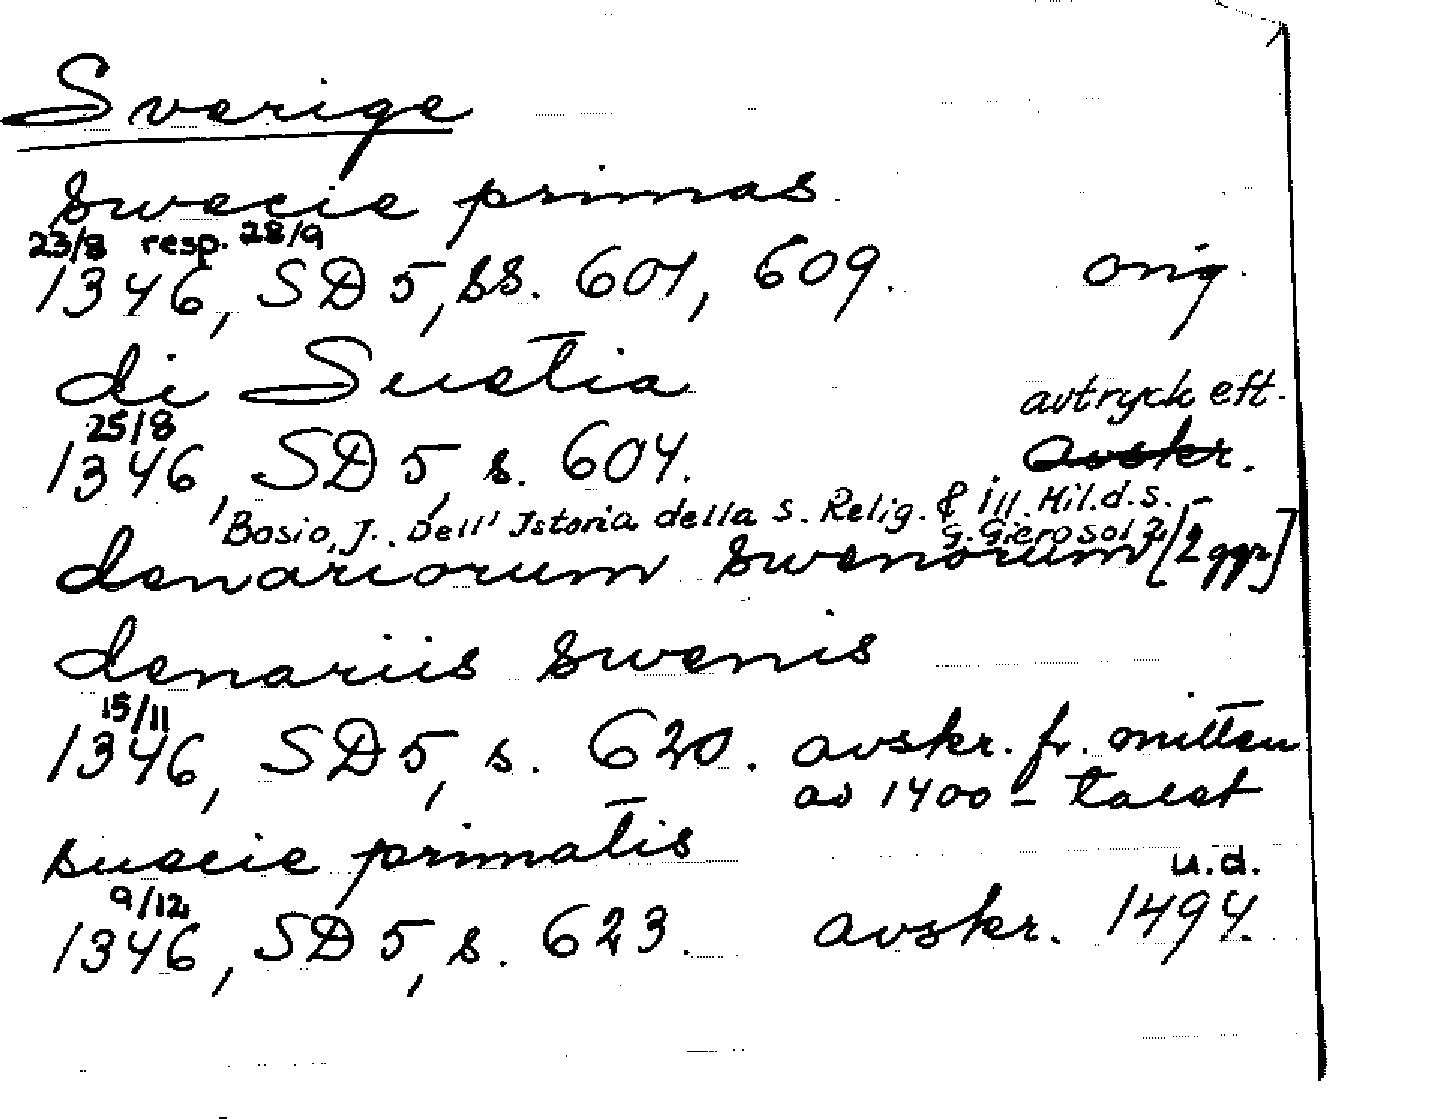 Sverige
Swecie primas.
23/8 resp. 28/9
1346, SD 5, ss. 601, 609. orig.
di Suetia
avtryck eft.
25/8
1346, SD 5, s. 604. avskr.
Bosio, J. Dell' Istoria della S. Relig. & Ill. Mil. d. S.
G. Gierosol
denariorum Swenorum [2 ggr]
denariis Swenis
15/11
1346, SD 5, s. 620. avskr. fr. mitten
av 1400-talet
suecie primatis
u.d.
9/12
1346, SD 5, s. 623. avskr. 1494.